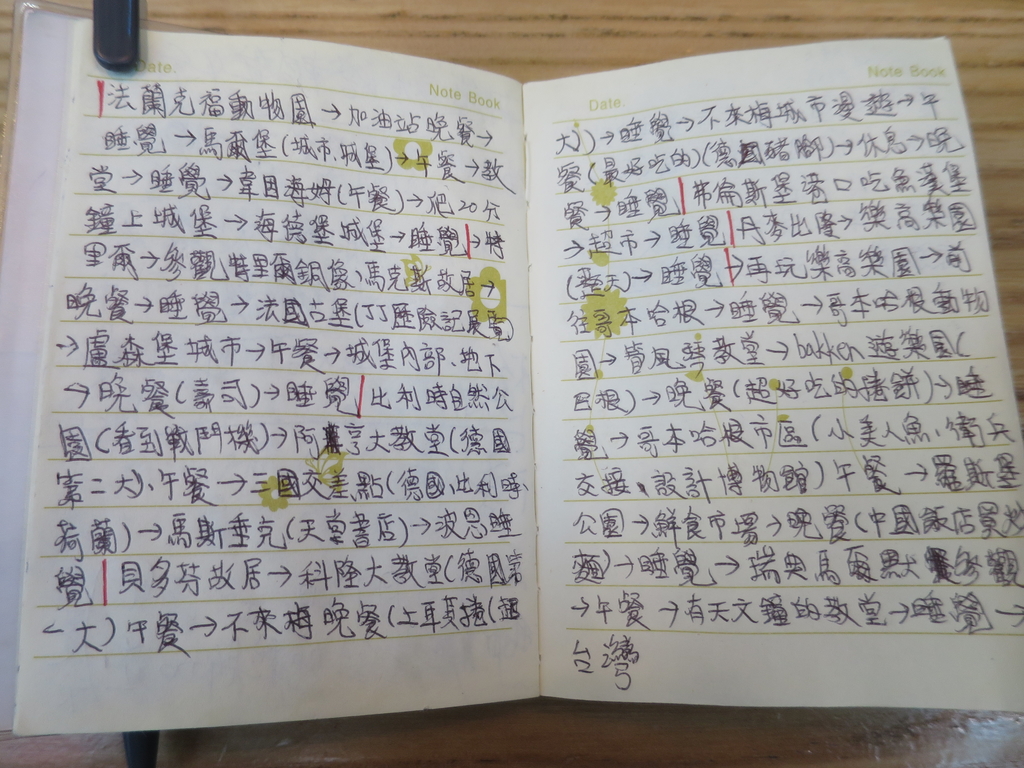 Date.
Note Book
法蘭克福動物園→加油站晚餐→
睡覺→馬爾堡(城市、城堡)→午餐→教
堂→睡覺→韋因海姆(午餐)→爬20分
鐘上城堡→海德堡城堡→睡覺|→特
里爾→參觀特里爾銅像、馬克斯故居→
晚餐→睡覺→法國古堡(丁丁歷險記展覽)
→盧森堡城市→午餐→城堡內部、地下
→晚餐(壽司)→睡覺|比利時自然公
園(看到戰鬥機)→阿亨大教堂(德國
第二大)、午餐→三國交差點(德國、比利時、
荷蘭)→馬斯垂克(天堂書店)→波恩睡
覺|貝多芬故居→科隆大教堂(德國第
一大)午餐→不來梅晚餐(上耳其捲(超
Date.
Note Book
大))→睡覺→不來梅城市漫遊→午
餐(最好吃的)(德國豬腳)→休息→晚
餐→睡覺|弗倫斯堡港口吃魚漢堡
→超市→睡覺|丹麥比隆→樂高樂園
(整天)→睡覺|→再玩樂高樂園→前
往哥本哈根→睡覺→哥本哈根動物
園→管風琴教堂→bakken遊樂園(
哥本哈根市區(小美人魚、衛兵
交接、設計博物館)午餐→羅斯堡
公園→鮮食市場→晚餐(中國飯店買炒
麵)→睡覺→瑞典馬爾默參觀
→午餐→有天文鐘的教堂→睡覺→
台灣